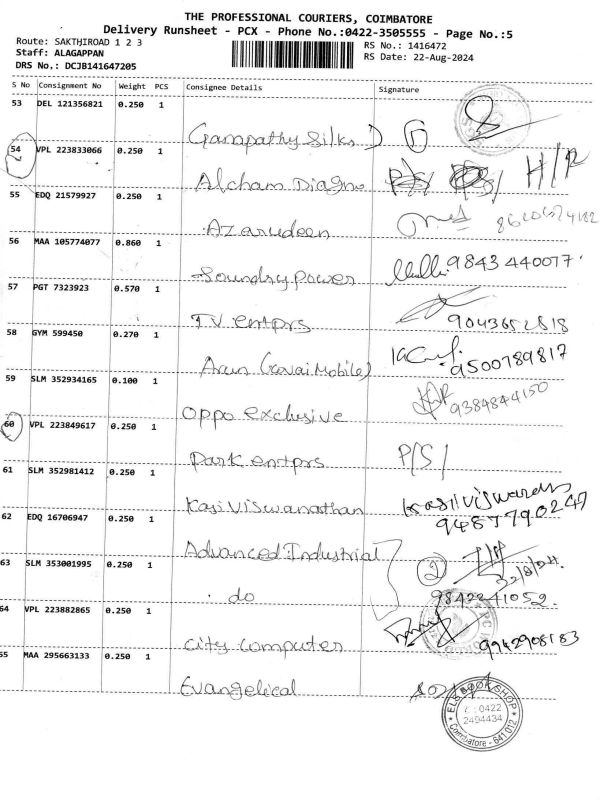 THE PROFESSIONAL COURIERS, COIMBATORE
Delivery Runsheet - PCX - Phone No.:0422-3505555 - Page No.:5
Route: SAKTHIROAD 1 2 3
Staff: ALAGAPPAN
DRS No.: DCJB141647205
RS No.: 1416472
RS Date: 22-Aug-2024
S No Consignment No Weight PCS Consignee Details Signature
53 DEL 121356821 0.250 1
Ganapathy Silks
54 VPL 223833066 0.250 1
Alcham Diagno P/S/ H/R
55 EDQ 21579927 0.250 1
Azarudeen
56 MAA 105774077 0.860 1
Soundry Power 9843440077
57 PGT 7323923 0.570 1
T.V. entprs 9043652818
58 GYM 599450 0.270 1
Arun (Kovai Mobile) 9500789817
59 SLM 352934165 0.100 1
Oppo exclusive 9384844150
60 VPL 223849617 0.250 1
Park entprs P/S/
61 SLM 352981412 0.250 1
Kasi Viswanathan 9487790247
62 EDQ 16706947 0.250 1
Advanced Industrial
63 SLM 353001995 0.250 1
do 2 9842241052
64 VPL 223882865 0.250 1
City Computer 9942908183
65 MAA 295663133 0.250 1
Evangelical
ELS BOOK SHOP
✆ : 0422
2494434
Coimbatore - 641 012